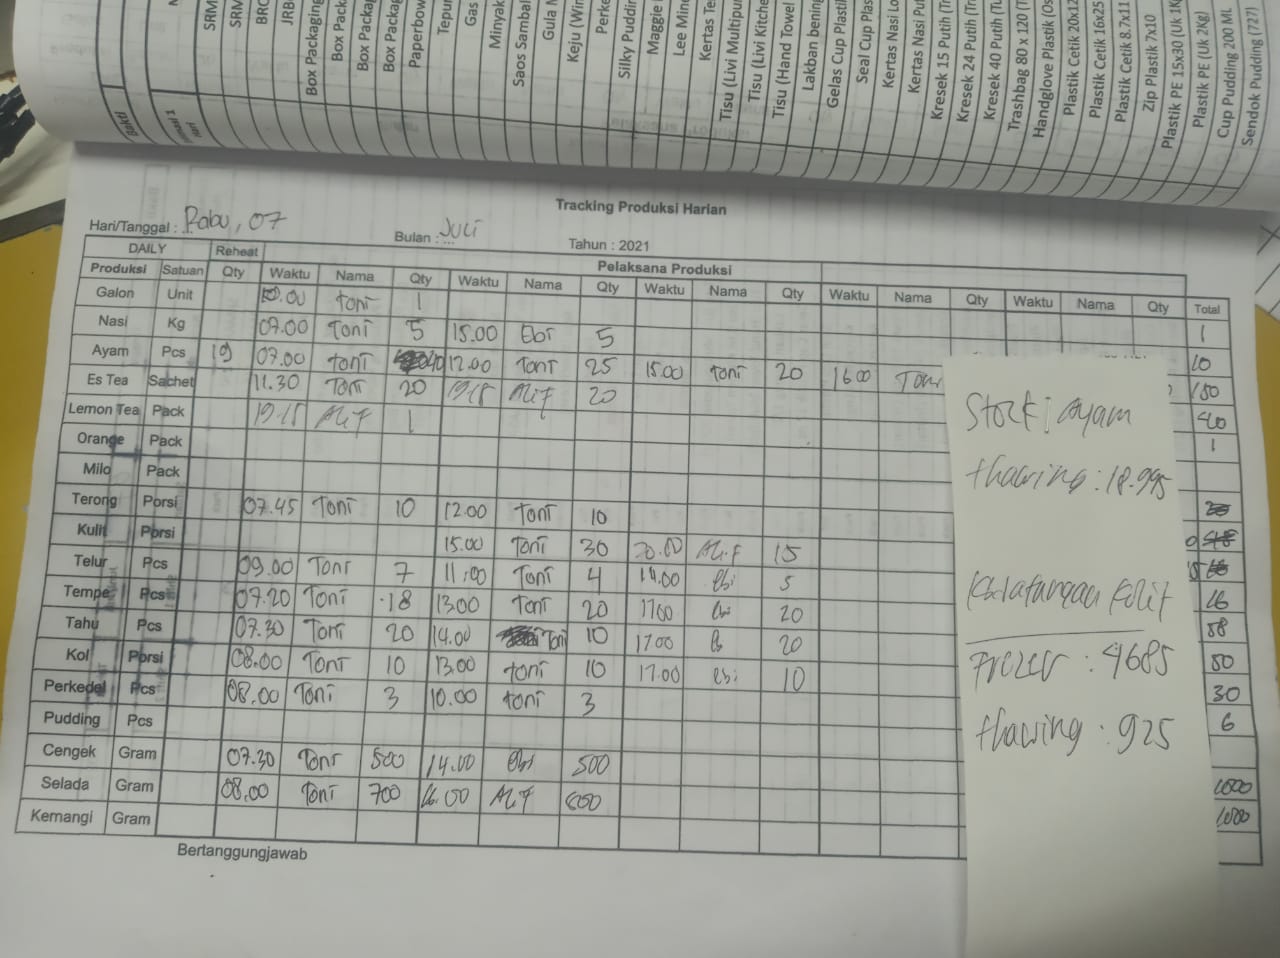 Bakti
SRM
SRM
BRO
JRB
Box Packaging
Box Pack
Box Packa
Box Packag
Paperbow
Tepu
Gas
Minyak
Saos Sambal
Gula M
Keju (Win
Perke
Silky Puddin
Maggie
Lee Mine
Kertas Te
Tisu (Livi Multipur
Tisu (Livi Kitche
Tisu (Hand Towel
Lakban bening
Gelas Cup Plasti
Seal Cup Plas
Kertas Nasi Lo
Kertas Nasi Pu
Kresek 15 Putih (Tr
Kresek 24 Putih (Tr
Kresek 40 Putih (Tu
Trashbag 80 x 120 (T
Handglove Plastik (Os
Plastik Cetik 20x12
Plastik Cetik 16x25
Plastik Cetik 8.7x11
Zip Plastik 7x10
Plastik PE 15x30 (Uk 1K
Plastik PE (Uk 2Kg)
Cup Pudding 200 ML
Sendok Pudding (727)
Tracking Produksi Harian
Hari/Tanggal : Rabu, 07 Bulan : Juli Tahun : 2021
DAILY Reheat Pelaksana Produksi
Produksi Satuan Qty Waktu Nama Qty Waktu Nama Qty Waktu Nama Qty Waktu Nama Qty Waktu Nama Qty Total
Galon Unit 10.00 Toni 1 1
Nasi Kg 07.00 Toni 5 15.00 Ebi 5 10
Ayam Pcs 19 07.00 Toni 40 12.00 Toni 25 15.00 Toni 20 16.00 Toni 150
Es Tea Sachet 11.30 Toni 20 19.15 Alif 20 40
Lemon Tea Pack 19.15 Alif 1 1
Orange Pack
Milo Pack
Terong Porsi 07.45 Toni 10 12.00 Toni 10
Kulit Porsi 15.00 Toni 30 20.00 Alif 15
Telur Pcs 09.00 Toni 7 11.00 Toni 4 14.00 Ebi 5 16
Tempe Pcs 07.20 Toni 18 13.00 Toni 20 17.00 Ebi 20 58
Tahu Pcs 07.30 Toni 20 14.00 Toni 10 17.00 Eb 20 50
Kol Porsi 08.00 Toni 10 13.00 Toni 10 17.00 Ebi 10 30
Perkedel Pcs 08.00 Toni 3 10.00 Toni 3 6
Pudding Pcs
Cengek Gram 07.30 Toni 500 14.00 Ebi 500 1000
Selada Gram 08.00 Toni 700 16.00 Alif 1000
Kemangi Gram
Bertanggungjawab
Stock : Ayam
thawing : 18.995
Kulit
Frozen : 4685
thawing : 925